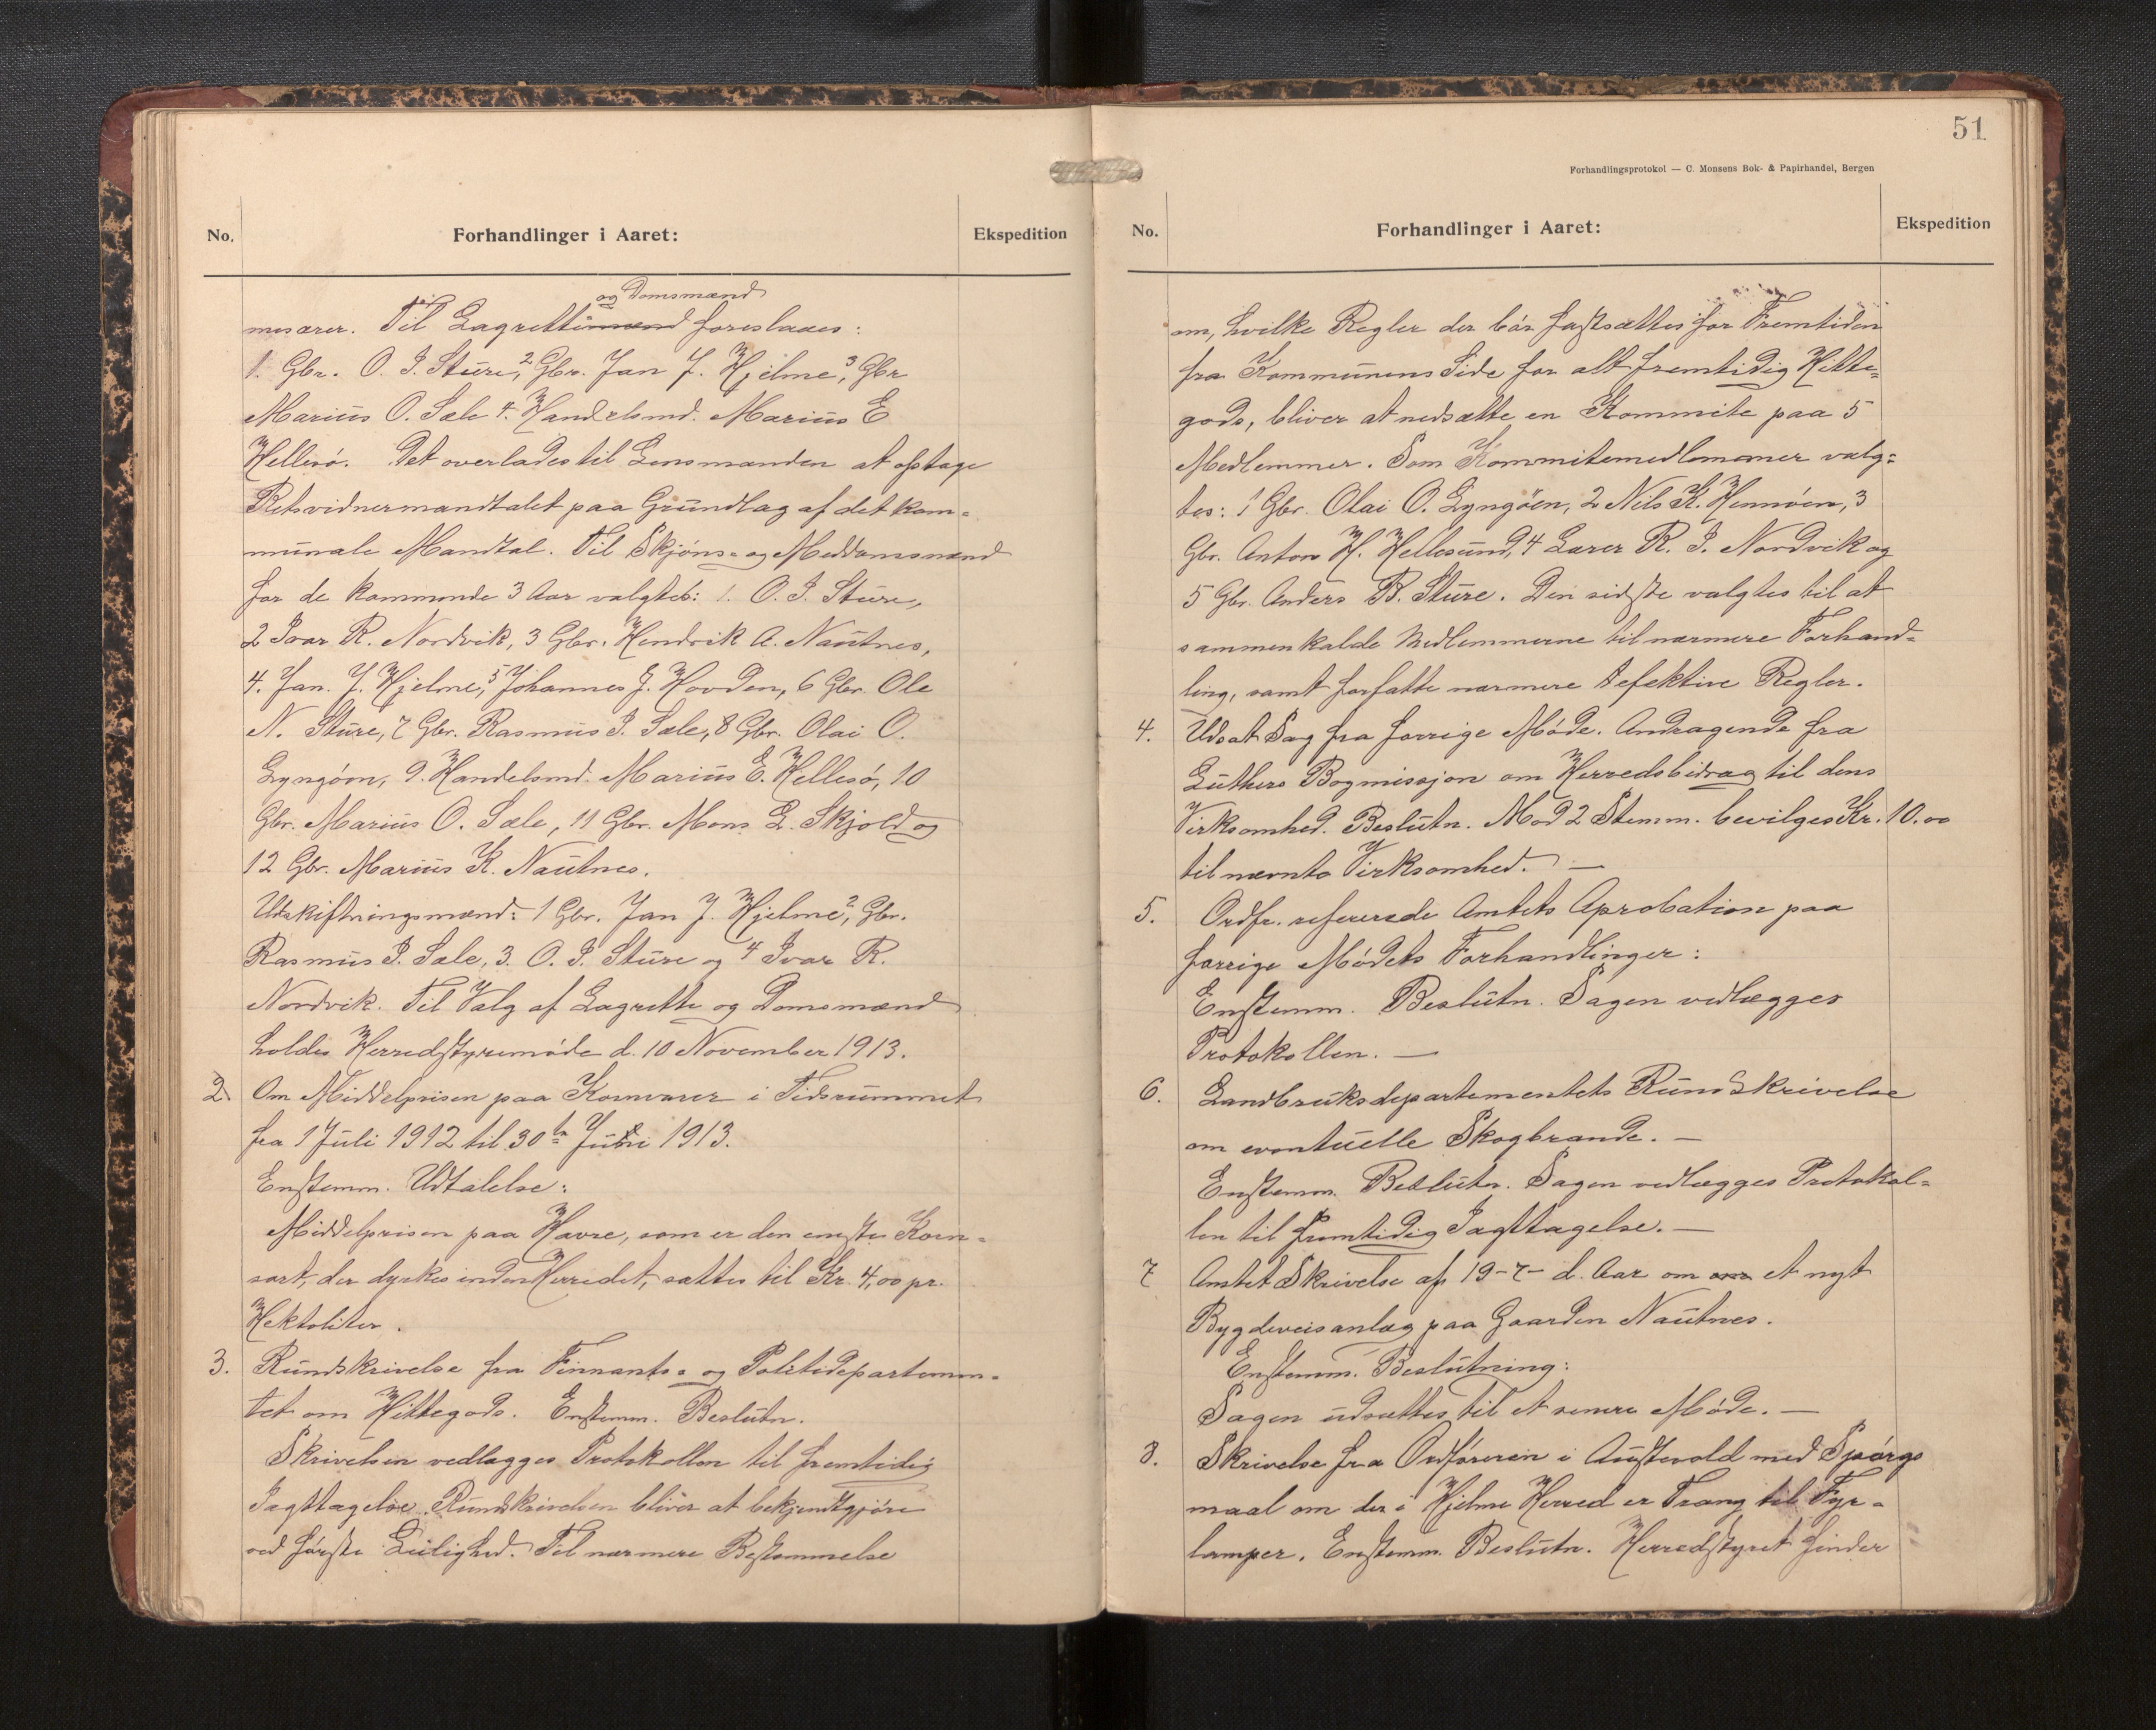 No.
Forhandlinger i Aaret:
Ekspedition
og Domsmænd
mesærer. Til Lagrettemænd foreslaaes:
1. Gbr. O. I. Sture, 2, Gbr. Jan J. Hjelme, 3, Gbr
Marius O. Sæle 4. Handelsmd. Marius E
Hellesö. Det overlades til Lensmanden at optage
Retsvidnermandtalet paa Grundlag af det kom-
munale Mandtal. Til Skjöns- og Meddomsmænd
for de kommende 3 Aar valgtes: 1. O. I. Sture,
2 Ivar R. Nordvik, 3 Gbr. Hendrik A. Nautnes,
4. Jan. J. Hjelme, 5 Johannes J. Hovden, 6 Gbr. Ole
N. Sture, 7 Gbr. Rasmus I. Sæle, 8 Gbr. Olai O.
Lyngöen, 9. Handelsmd. Marius E. Hellesö, 10
Gbr. Marius O. Sæle, 11 Gbr. Mons L. Skjold og
12 Gbr. Marius K. Nautnes.
Udskiftningsmænd: 1 Gbr. Jan J. Hjelme, 2, Gbr.
Rasmus I. Sæle, 3. O. I. Sture og 4 Ivar R.
Nordvik. Til Valg af Lagrette og Domsmænd
holdes Herredstyremöde d. 10 November 1913.
2. Om Middelprisen paa Kornvarer i Tidsrummet
fra 1 Juli 1912 til 30te Juni 1913.
Enstemm. Udtalelse:
Middelprisen paa Havre, som er den eneste Korn-
sort, der dyrkes inden Herredet, sættes til Kr. 4,00 pr.
Hektoliter.
3. Rundskrivelse fra Finnants- og Politidepartemen-
tet om Hittegods. Enstemm. Beslutn.
Skrivelsen vedlægges Protokollen til fremtidig
Iagttagelse. Rundskrivelsen bliver at bekjendtgjöre
ved förste Leilighed. Til nærmere Bestemmelse
51
Forhandlingsprotokol — C. Monsens Bok- & Papirhandel, Bergen
No.
Forhandlinger i Aaret:
Ekspedition
om, hvilke Regler der bör fastsættes for Fremtiden
fra Kommunens Side for alt fremtidig Hitte-
gods, bliver at nedsætte en Kommite paa 5
Medlemmer. Som Kommitemedlemmer valg-
tes: 1 Gbr. Olai O. Lyngöen, 2 Nils K. Hennöen, 3
Gbr. Anton H. Hellesund, 4 Lærer R. I. Nordvik og
5 Gbr. Anders B. Sture. Den sidste valgtes til at
sammenkalde Medlemmerne til nærmere Forhand-
ling, samt forfatte nærmere defektive Regler.
4. Udsat Sag fra forrige Möde. Andragende fra
Luthers Bogmissjon om Herredsbidrag til dens
Virksomhed. Beslutn. Mod 2 Stemm. bevilges Kr. 10.00
til nævnte Virksomhed. —
5. Ordfr. refererede Amtets Aprobation paa
forrige Mödets Forhandlinger:
Enstemm. Beslutn. Sagen vedlægges
Protokollen. —
6. Landbruksdepartementets Rundskrivelse
om eventuelle Skogbrande. —
Enstemm. Beslutn. Sagen vedlægges Protokol-
len til fremtidig Iagttagelse. —
7 Amtet Skrivelse af 19-7- d. Aar om et nyt
Bygdeveisanlæg paa Gaarden Nautnes.
Enstemm. Beslutning:
Sagen udsættes til et senere Möde. —
8. Skrivelse fra Ordföreren i Austevold med Spörgs
maal om der i Hjelme Herred er Trang til Fyr-
lamper. Enstemm. Beslutn. Herredstyret finder